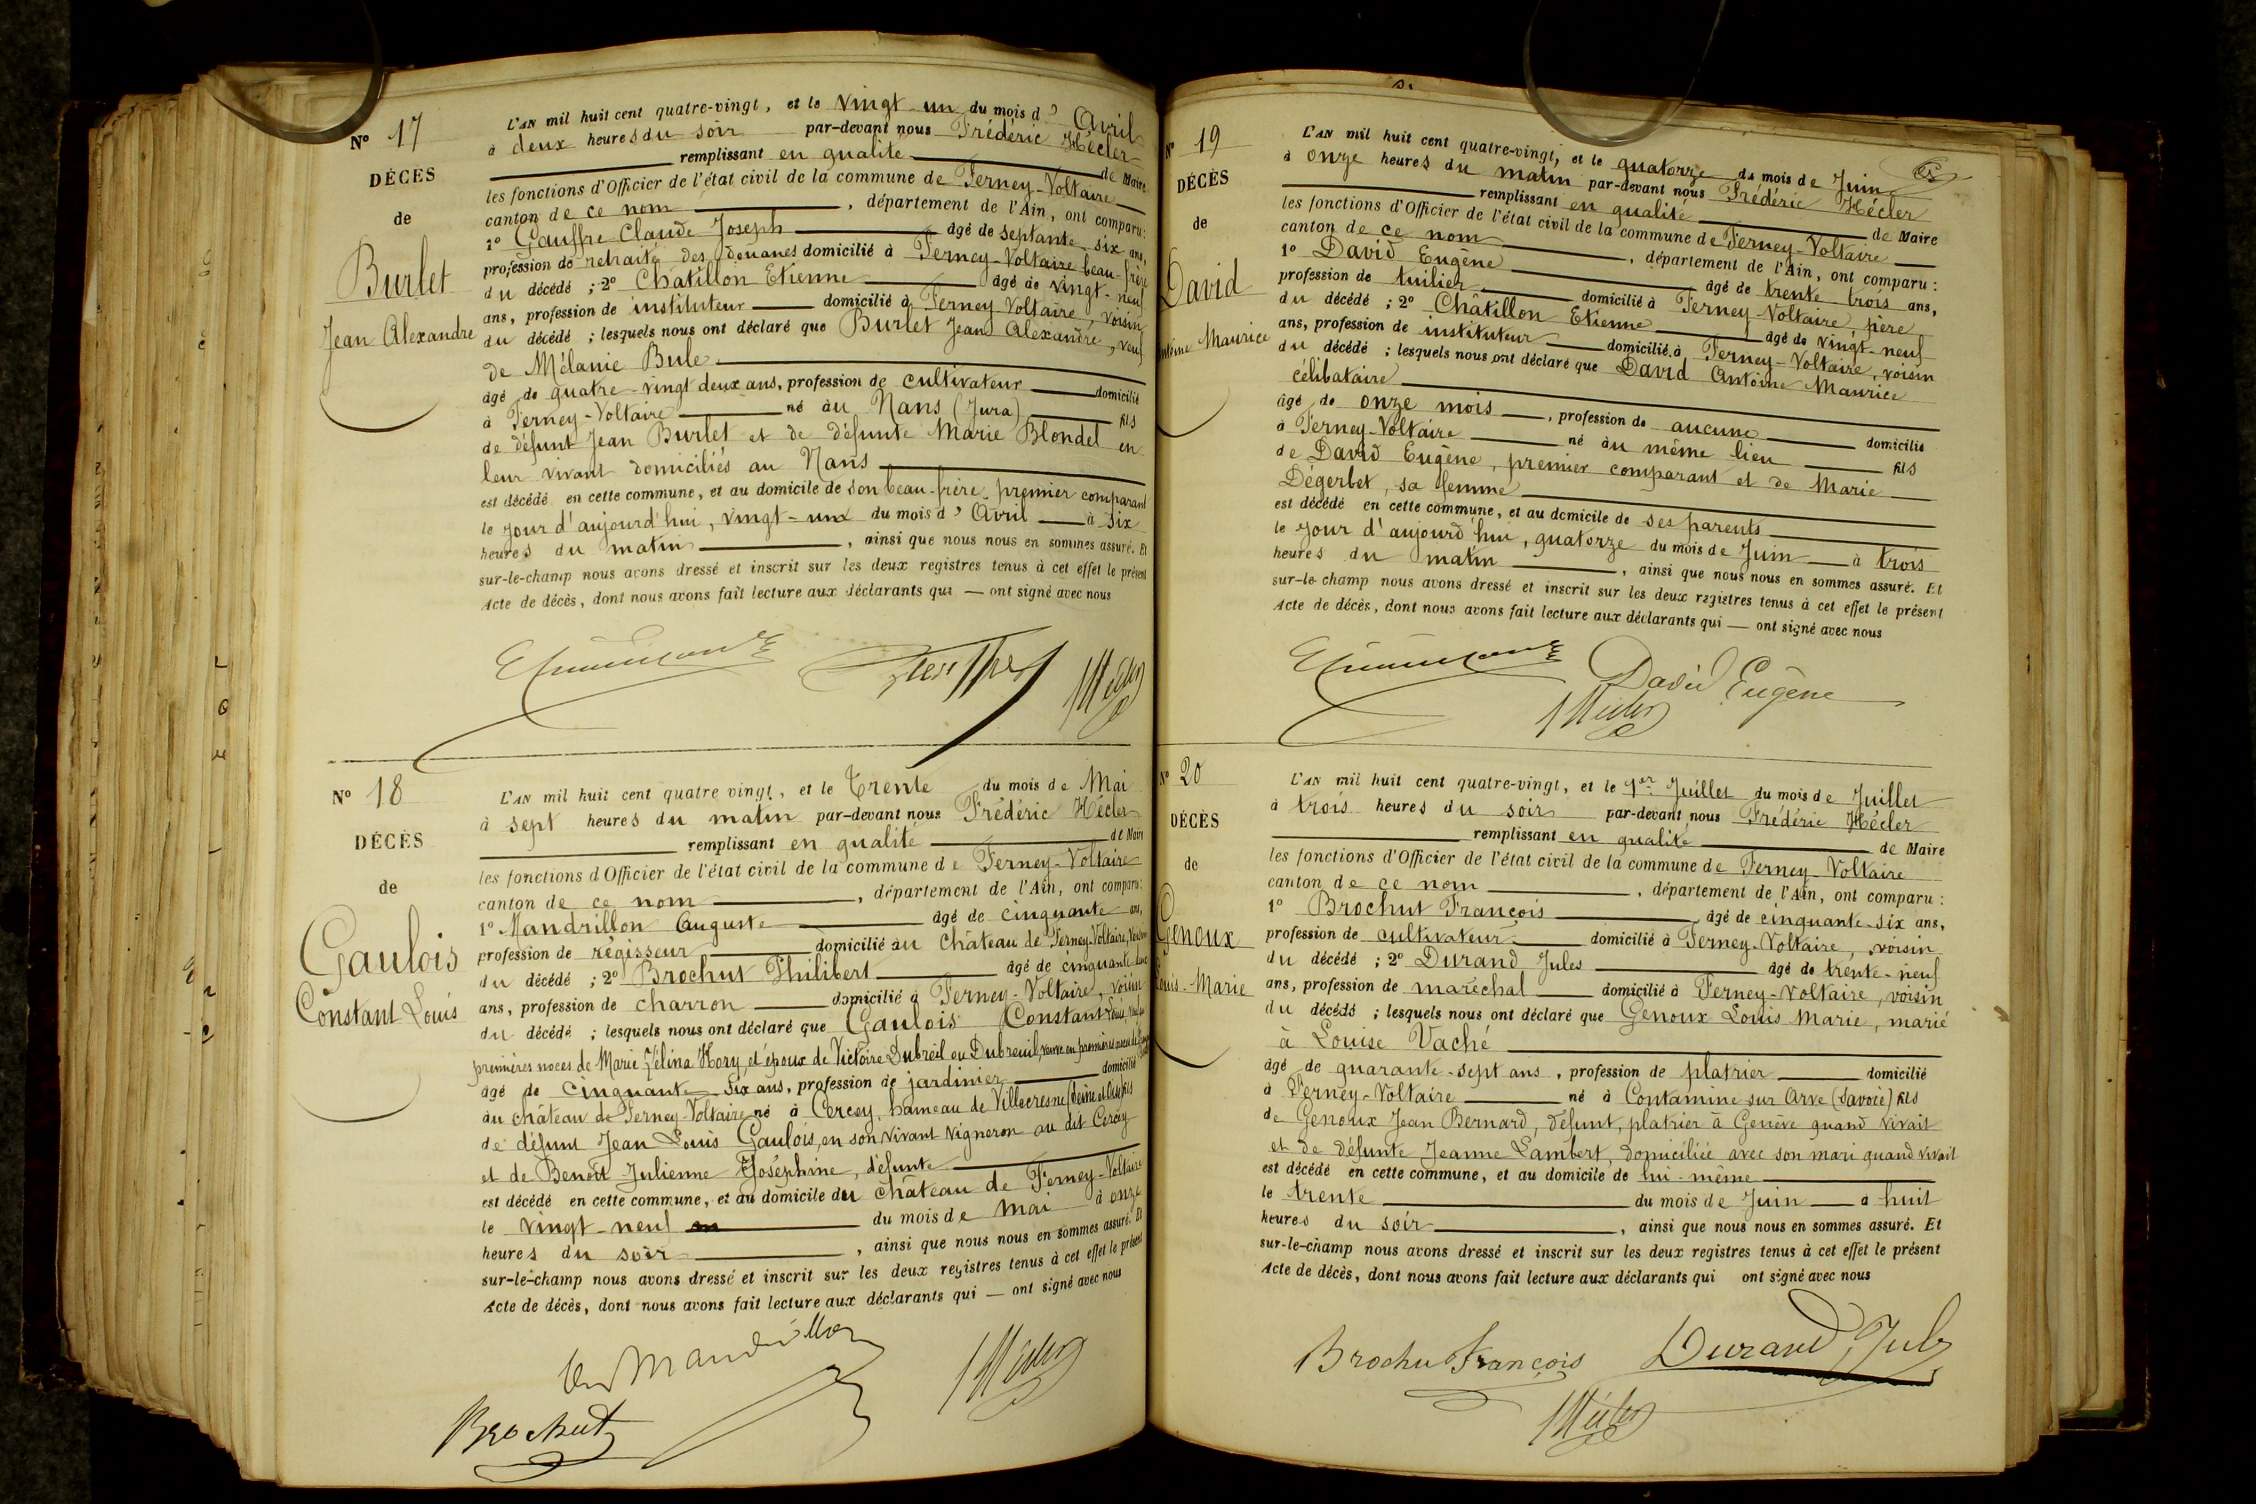 N° 17
DÉCÈS
de
Burlet
Jean Alexandre
L'AN mil huit cent quatre-vingt, et le vingt-un du mois d'Avril
à deux heures du soir par-devant nous Frédéric Hécler
remplissant en qualité de Maire
les fonctions d'Officier de l'état civil de la commune de Ferney-Voltaire
canton de ce nom, département de l'Ain, ont comparu:
1° Gauffre Claude Joseph âgé de septante-six ans,
profession de retraité des douanes domicilié à Ferney-Voltaire beau-frère
du décédé; 2° Chatillon Etienne âgé de vingt-neuf
ans, profession de instituteur domicilié à Ferney-Voltaire, voisin
du décédé; lesquels nous ont déclaré que Burlet Jean Alexandre, veuf
de Mélanie Bule
âgé de quatre-vingt deux ans, profession de cultivateur domicilié
à Ferney-Voltaire né au Nans (Jura) fils
de défunt Jean Burlet et de défunte Marie Blondel en
leur vivant domiciliés au Nans
est décédé en cette commune, et au domicile de son beau-frère, premier comparant
le jour d'aujourd'hui, vingt-un du mois d'Avril à six
heures du matin, ainsi que nous nous en sommes assuré. Et
sur-le-champ nous avons dressé et inscrit sur les deux registres tenus à cet effet le présent
Acte de décès, dont nous avons fait lecture aux déclarants qui — ont signé avec nous
N° 18
DÉCÈS
de
Gaulois
Constant Louis
L'AN mil huit cent quatre-vingt, et le Trente du mois de Mai
à sept heures du matin par-devant nous Frédéric Hécler
remplissant en qualité de Maire
les fonctions d'Officier de l'état civil de la commune de Ferney-Voltaire
canton de ce nom, département de l'Ain, ont comparu:
1° Mandrillon Auguste âgé de cinquante ans,
profession de régisseur domicilié au château de Ferney-Voltaire, voisin
du décédé; 2° Brochut Philibert âgé de cinquante
ans, profession de charron domicilié à Ferney-Voltaire, voisin
du décédé; lesquels nous ont déclaré que Gaulois Constant Louis,
premières noces de Marie Zélina Hory, et époux de Victoire Dubreil ou Dubreuil, veuve en premières noces de
âgé de cinquante-six ans, profession de jardinier domicilié
au château de Ferney-Voltaire né à Cercey, hameau de Villecresne (Seine et Oise) fils
de défunt Jean Louis Gaulois, en son vivant vigneron au dit Cercey
et de Benoît Julienne Joséphine, défunte
est décédé en cette commune, et au domicile du château de Ferney-Voltaire
le vingt-neuf du mois de Mai à onze
heures du soir, ainsi que nous nous en sommes assuré. Et
sur-le-champ nous avons dressé et inscrit sur les deux registres tenus à cet effet le présent
Acte de décès, dont nous avons fait lecture aux déclarants qui — ont signé avec nous
Mandrillon
Brochut
N° 19
DÉCÈS
de
David
Antoine Maurice
L'AN mil huit cent quatre-vingt, et le quatorze du mois de Juin
à onze heures du matin par-devant nous Frédéric Hécler
remplissant en qualité de Maire
les fonctions d'Officier de l'état civil de la commune de Ferney-Voltaire
canton de ce nom, département de l'Ain, ont comparu:
1° David Eugène âgé de trente trois ans,
profession de tuilier domicilié à Ferney-Voltaire, père
du décédé; 2° Châtillon Etienne âgé de vingt-neuf
ans, profession de instituteur domicilié à Ferney-Voltaire, voisin
du décédé; lesquels nous ont déclaré que David Antoine Maurice
célibataire
âgé de onze mois, profession de aucune domicilié
à Ferney-Voltaire né au même lieu fils
de David Eugène, premier comparant et de Marie
Dégerbet, sa femme
est décédé en cette commune, et au domicile de ses parents
le jour d'aujourd'hui, quatorze du mois de Juin à trois
heures du matin, ainsi que nous nous en sommes assuré. Et
sur-le-champ nous avons dressé et inscrit sur les deux registres tenus à cet effet le présent
Acte de décès, dont nous avons fait lecture aux déclarants qui — ont signé avec nous
David Eugène
N° 20
DÉCÈS
de
Genoux
Louis-Marie
L'AN mil huit cent quatre-vingt, et le 1er Juillet du mois de Juillet
à trois heures du soir par-devant nous Frédéric Hécler
remplissant en qualité de Maire
les fonctions d'Officier de l'état civil de la commune de Ferney-Voltaire
canton de ce nom, département de l'Ain, ont comparu:
1° Brochut François âgé de cinquante-six ans,
profession de cultivateur domicilié à Ferney-Voltaire, voisin
du décédé; 2° Durand Jules âgé de trente-neuf
ans, profession de maréchal domicilié à Ferney-Voltaire, voisin
du décédé; lesquels nous ont déclaré que Genoux Louis Marie, marié
à Louise Vaché
âgé de quarante-sept ans, profession de platrier domicilié
à Ferney-Voltaire né à Contamine sur Arve (Savoie) fils
de Genoux Jean Bernard, défunt, platrier à Genève quand vivait
et de défunte Jeanne Lambert, domiciliée avec son mari quand vivait
est décédé en cette commune, et au domicile de lui-même
le trente du mois de Juin à huit
heures du soir, ainsi que nous nous en sommes assuré. Et
sur-le-champ nous avons dressé et inscrit sur les deux registres tenus à cet effet le présent
Acte de décès, dont nous avons fait lecture aux déclarants qui ont signé avec nous
Brochut François
Durand Jules